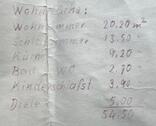 Wohnfläche:
Wohnzimmer 20.20 m²
Schlafzimmer 13.50
Küche 9.20
Bad WC 2.70
Kinderschlafst 3.90
Diele 5.00
54.50